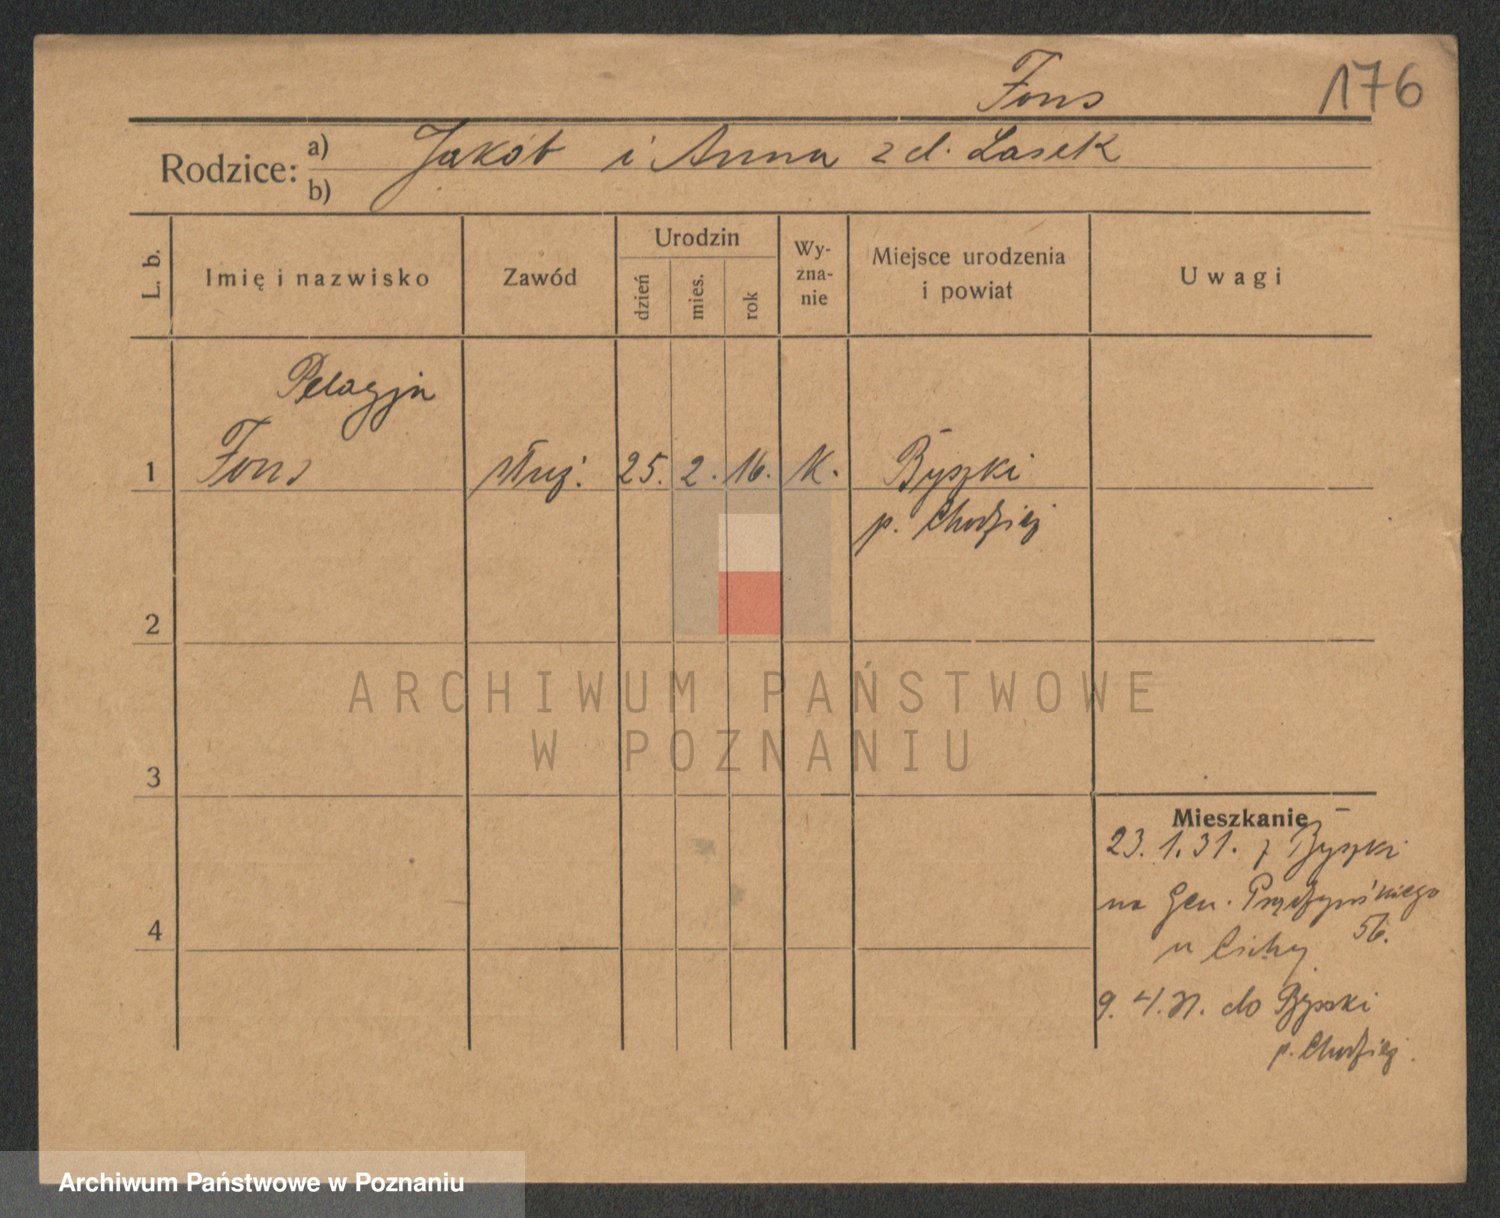 Fons 176
Rodzice: a) Jakób i Anna z d. Lasek
b)
L. b.
Imię i nazwisko
Zawód
Urodzin
dzień
mies.
rok
Wy-
zna-
nie
Miejsce urodzenia
i powiat
Uwagi
Pelagja
1 Fons służ. 25. 2. 16. K. Byszki
p. Chodzież
2
ARCHIWUM PAŃSTWOWE
W POZNANIU
3
Mieszkanie
23.1.31. z Byszki
na Gen. Prądzyńskiego
56.
u Cichy
4
9.4.31. do Byszki
p. Chodzież.
Archiwum Państwowe w Poznaniu